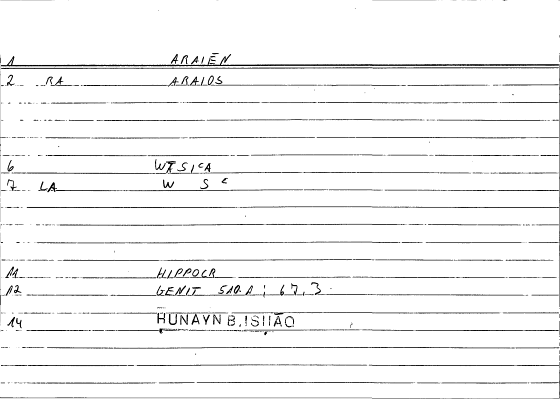 1 ARAIĒN
2 RA ARAIOS
6 WĀSIʿA
7 LA W S ʿ
11 HIPPOCR
12 GENIT SAQA; 67,3
14 HUNAYN B. ISḤĀQ